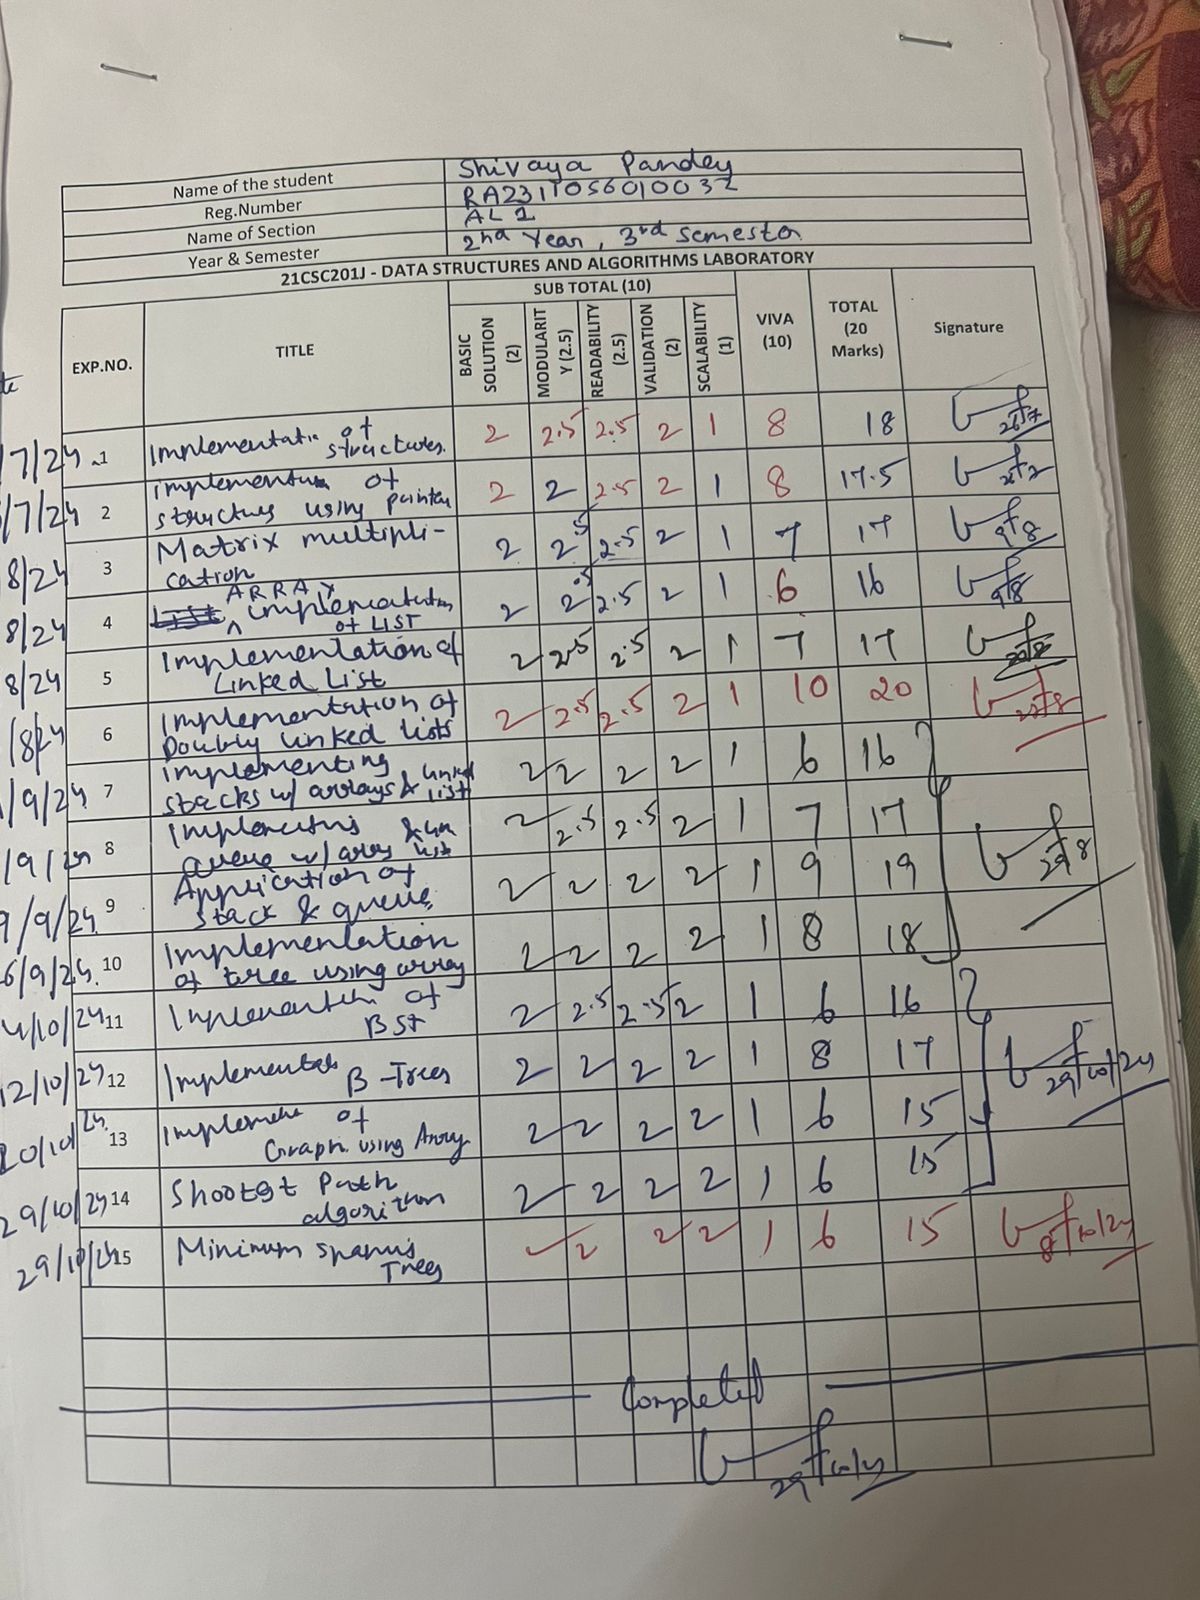 Name of the student Shivaya Pandey
Reg.Number RA2311056010032
Name of Section AL1
Year & Semester 2nd Year, 3rd semester
21CSC201J - DATA STRUCTURES AND ALGORITHMS LABORATORY
SUB TOTAL (10)
EXP.NO. TITLE BASIC SOLUTION (2) MODULARIT Y (2.5) READABILITY (2.5) VALIDATION (2) SCALABILITY (1) VIVA (10) TOTAL (20 Marks) Signature
7/24 1 Implementatio of structures. 2 2.5 2.5 2 1 8 18
/7/24 2 structures using pointer 2 2 2.5 2 1 8 17.5
8/24 3 Matrix multipli-cation 2 2.5 2.5 2 1 7 17 9/8
8/24 4 ARRAY implementation of LIST 2 2.5 2.5 2 1 6 16 9/8
8/24 5 Implementation of Linked List 2 2.5 2.5 2 1 7 17
/8/24 6 Implementation of Doubly linked lists 2 2.5 2.5 2 1 10 20
/9/24 7 Implementing stacks w/ arrays & linked list 2 2 2 2 1 6 16
/9/24 8 queue w/ array 2 2.5 2.5 2 1 7 17
9/9/24 9 Application of stack & queue 2 2 2 2 1 9 19 29/8
6/9/24 10 Implementation of tree using array 2 2 2 2 1 8 18
4/10/24 11 of BST 2 2.5 2.5 2 1 6 16
12/10/24 12 B-Trees 2 2 2 2 1 8 17 29/10/24
20/10/24 13 of Graph using Array 2 2 2 2 1 6 15
29/10/24 14 Shortest Path algorithm 2 2 2 2 1 6 15
29/10/24 15 Minimum Trees 2 2 2 1 6 15
Completed
29/10/24